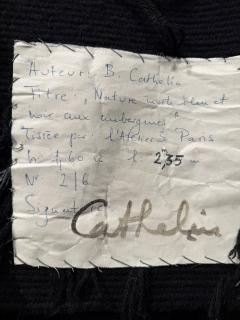 Auteur: B. Cathelin
Titre: "Nature morte bleu et
noir aux aubergines"
Tissée par: l'Atelier 3 Paris
h: 1,60 l: 2,35 m
N° 2/6
Signature
Cathelin